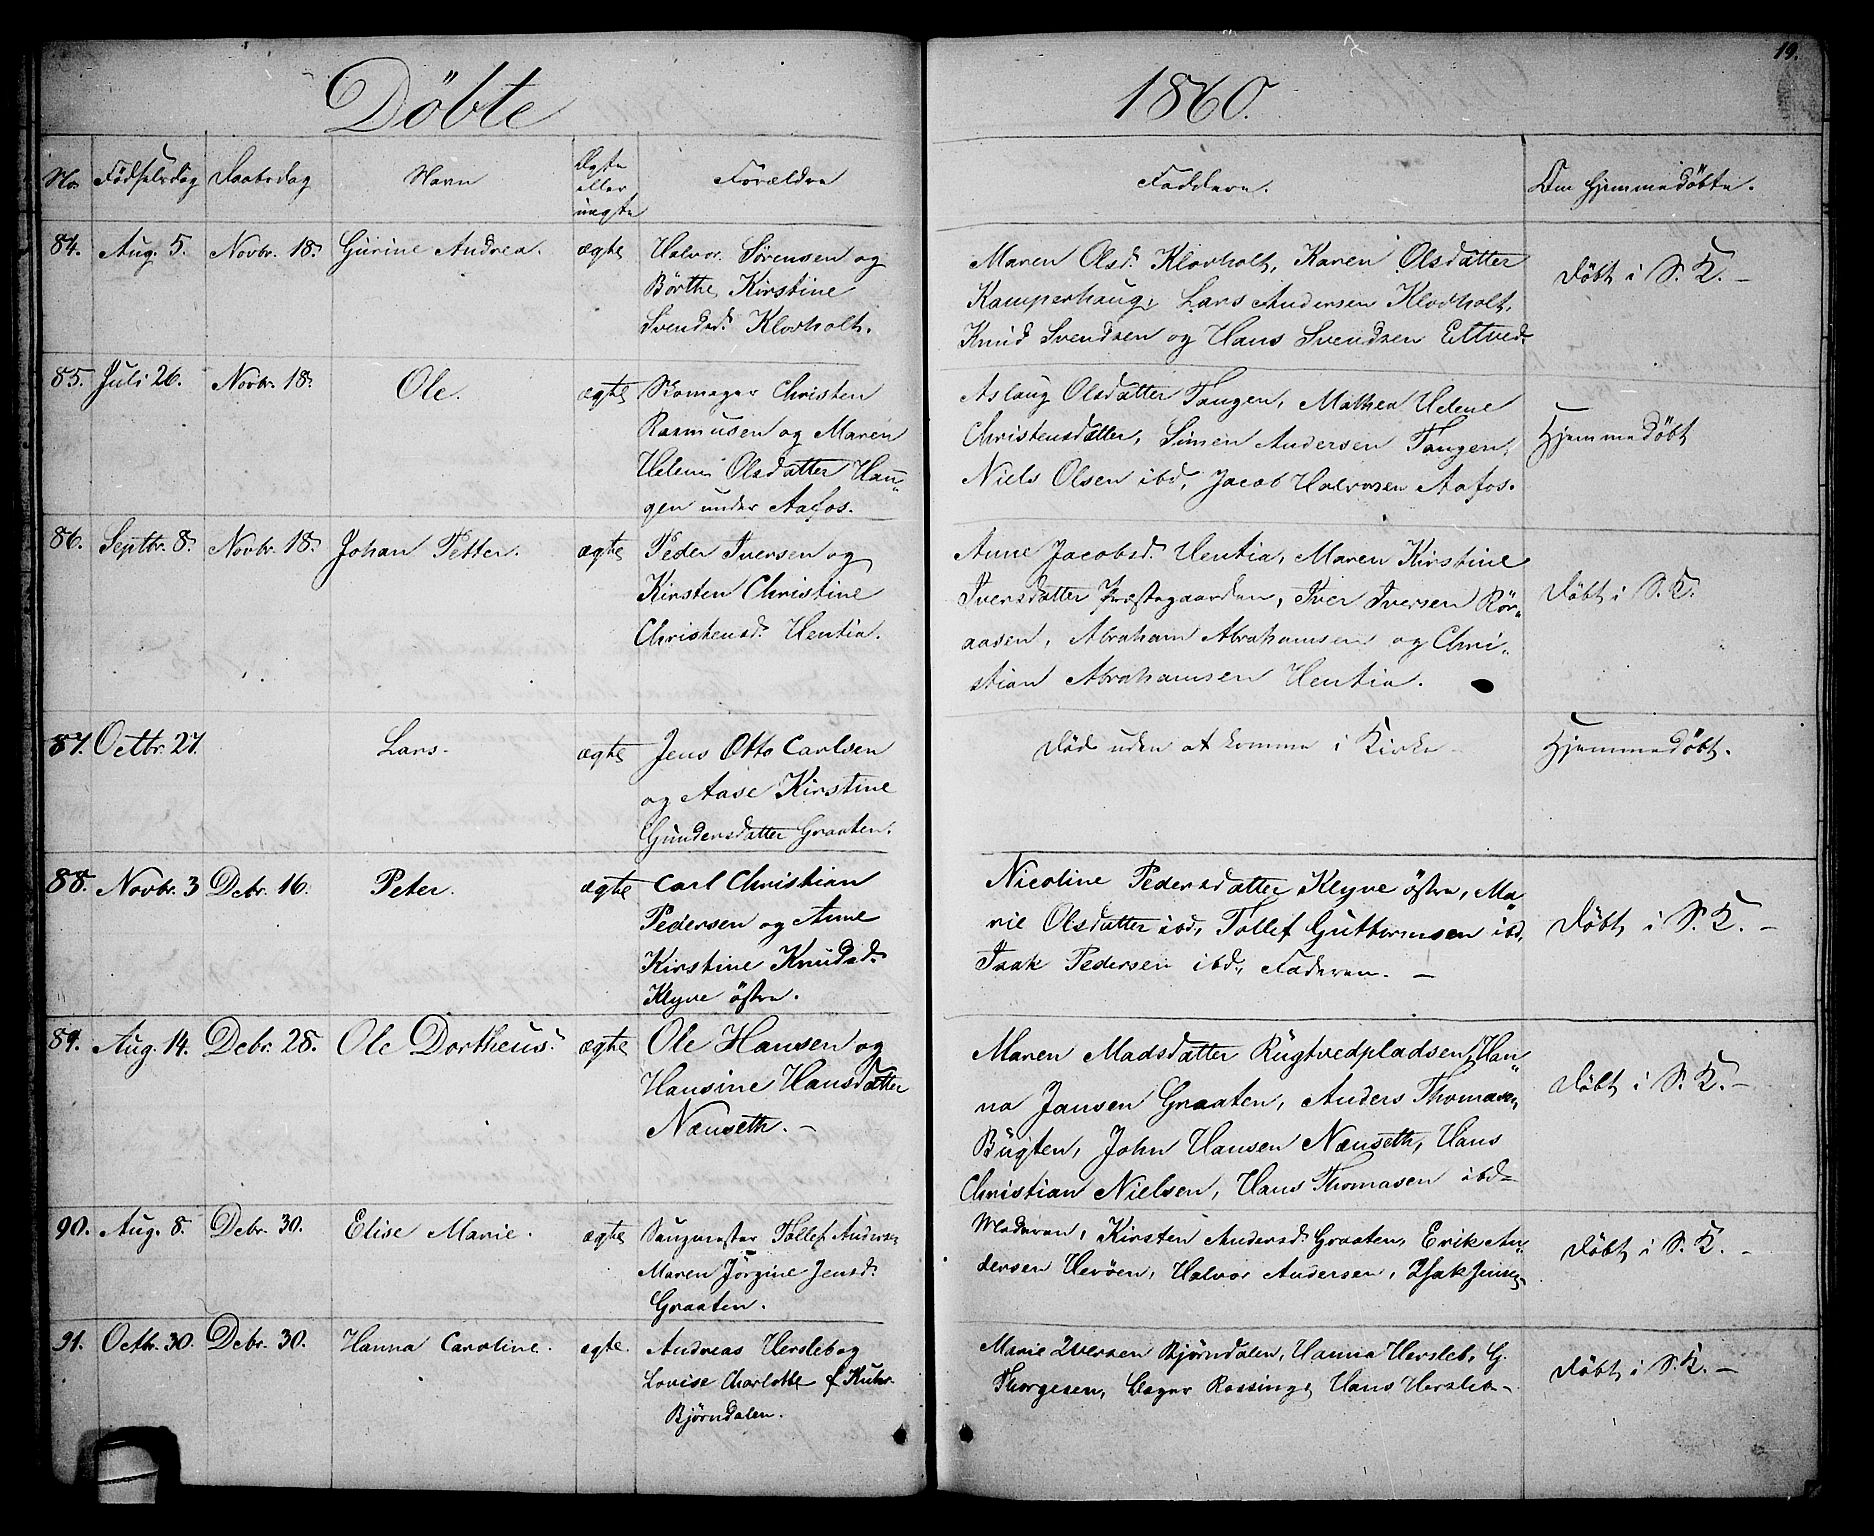 Döbte 1860.
19.
No Födselsdag Daabsdag Navn Ægte eller uægte Forældre Faddere. Om Hjemmedöbte.
84. Aug. 5. Novbr. 18. Gurine Andrea. ægte Halvor Sörensen og
Börthe Kirstine
Svendsd. Klovholt.
Maren Olsd. Klovholt, Karen Olsdatter
Kamperhaug, Lars Andersen Klovholt,
Knud Svendsen og Hans Svendsen Eltved
Döbt i S. K. –
85. Juli 26. Novbr. 18. Ole. ægte Skomager Christen
Rasmusen og Maren
Helene Olsdatter Hau„
gen under Aafos.
Aslaug Olsdatter Tangen, Mathea Helene
Christensdatter, Simen Andersen Tangen,
Niels Olsen ibd, Jacob Halvorsen Aafos.
Hjemmedöbt
86. Septbr. 8. Novbr. 18. Johan Petter. ægte Peder Iversen og
Kirsten Christine
Christensd. Hentia.
Anne Jacobsd. Hentia, Maren Kirstine
Iversdatter Præstegaarden, Iver Iversen Rör„
aasen, Abraham Abrahamsen og Chri„
stian Abrahamsen Hentia.
Döbt i S. K.
87. Octbr. 27. Lars. ægte Jens Otto Carlsen
og Aase Kirstine
Gundersdatter Graaten.
Död uden at komme i Kirke –
Hjemmedöbt.
88. Novbr. 3 Debr. 16. Peter. ægte Carl Christian
Pedersen og Anne
Kirstine Knudsd.
Klyve östre.
Nicoline Pedersdatter Klyve östre, Ma„
rie Olsdatter ibd, Tollef Guttormsen ibd,
Isak Pedersen ibd, Faderen. –
Döbt i S. K. –
89. Aug. 14. Debr. 28. Ole Dortheus. ægte Ole Hansen og
Hansine Hansdatter
Næuseth. –
Maren Madsdatter Rugtvedpladsen, Han„
na Jansen Graaten, Anders Thomasen
Bugten, John Hansen Næuseth, Hans
Christian Nielsen, Hans Thomasen ibd–
Döbt i S. K. –
90. Aug. 8. Debr. 30. Elise Marie. ægte Saugmester Tollef Andersen
Maren Jörgine Jensd.
Graaten.
Moderen, Kirsten Andersd. Graaten, Erik An„
dersen Heröen, Halvor Andersen, Isak Jensen
Döbt i S. K. –
91. Octbr. 30. Debr. 30. Hanna Caroline. ægte. Andreas Hersleb og
Lovise Charlotte f Kuhr
Björndalen.
Marie Iversen Björndalen, Hanna Hersleb, G.
Thorgesen, Rossing, Hans Hersleb –
Döbt i S. K. –